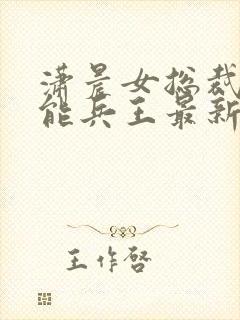 潇晨女总裁
能兵王最新
王作启